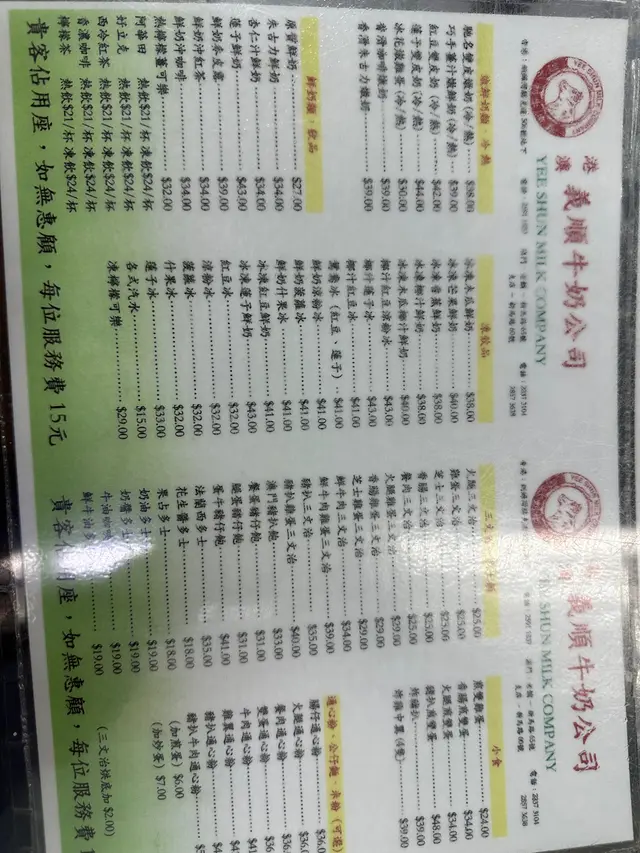 港澳 義順牛奶公司
YEE SHUN MILK COMPANY
燉鮮奶類：冷熱
馳名雙皮燉奶(冷/熱) $38.00
巧手薑汁燉鮮奶(冷/熱) $39.00
紅豆雙皮奶(冷/熱) $42.00
蓮子雙皮奶(冷/熱) $44.00
冰花燉雞蛋(冷/熱) $30.00
香滑咖啡燉奶 $39.00
香滑朱古力燉奶 $39.00
鮮奶類：飲品
原質鮮奶 $27.00
朱古力鮮奶 $34.00
杏仁汁鮮奶 $34.00
蓮子鮮奶 $43.00
鮮奶麥皮露 $39.00
鮮奶沖紅茶 $34.00
鮮奶沖咖啡 $34.00
熱檸檬薑可樂 $32.00
阿華田 熱飲$21/杯 凍飲$24/杯
好立克 熱飲$21/杯 凍飲$24/杯
西冷紅茶 熱飲$21/杯 凍飲$24/杯
香濃咖啡 熱飲$21/杯 凍飲$24/杯
檸檬茶 熱飲$21/杯 凍飲$24/杯
凍飲品
冰凍木瓜鮮奶 $38.00
冰凍芒果鮮奶 $40.00
冰凍雪蕉鮮奶 $38.00
冰凍椰汁鮮奶 $38.00
冰凍木瓜椰汁鮮奶 $40.00
椰汁紅豆涼粉冰 $43.00
椰汁蓮子冰 $43.00
椰汁紅豆冰 $41.00
鴛鴦冰（紅豆、蓮子） $41.00
鮮奶涼粉冰 $41.00
鮮奶菠蘿冰 $41.00
鮮奶什果冰 $41.00
冰凍紅豆鮮奶 $41.00
冰凍蓮子鮮奶 $43.00
紅豆冰 $32.00
涼粉冰 $32.00
菠蘿冰 $32.00
什果冰 $32.00
蓮子冰 $33.00
各式汽水 $15.00
凍檸檬可樂 $29.00
貴客佔用座，如無惠顧，每位服務費15元
義順牛奶公司
SHUN MILK COMPANY
火腿三文治 $25.00
雞蛋三文治 $25.00
芝士三文治 $25.00
香腸三文治 $25.00
餐肉三文治 $25.00
火腿雞蛋三文治 $29.00
香腸雞蛋三文治 $29.00
芝士雞蛋三文治 $29.00
鮮牛肉三文治 $34.00
鮮牛肉雞蛋三文治 $39.00
豬扒三文治 $35.00
豬扒雞蛋三文治 $40.00
澳門豬扒飽 $33.00
餐蛋豬仔飽 $31.00
腿蛋豬仔飽 $31.00
蛋牛豬仔飽 $41.00
法蘭西多士 $35.00
花生醬多士 $18.00
果占多士 $18.00
奶油多士 $19.00
奶醬多士 $19.00
牛油咖 $19.00
鮮牛油多 $19.00
(三文治烘底加 $2.00)
小食
煎雙雞蛋 $24.00
香腸煎雙蛋 $34.00
火腿煎雙蛋 $34.00
豬扒煎雙蛋 $48.00
炸豬扒 $39.00
炸雞中翼(4隻) $39.00
通心粉：公仔麵 米粉 (可選)
腸仔通心粉 $36.0
火腿通心粉 $36.
餐肉通心粉 $36.
雙蛋通心粉 $36
牛肉通心粉 $41
雞翼通心粉 $4
豬扒通心粉 $4
豬扒牛肉通心粉 $5
(加煎蛋) $6.00
(加炒蛋) $7.00
貴客佔用座，如無惠顧，每位服務費1